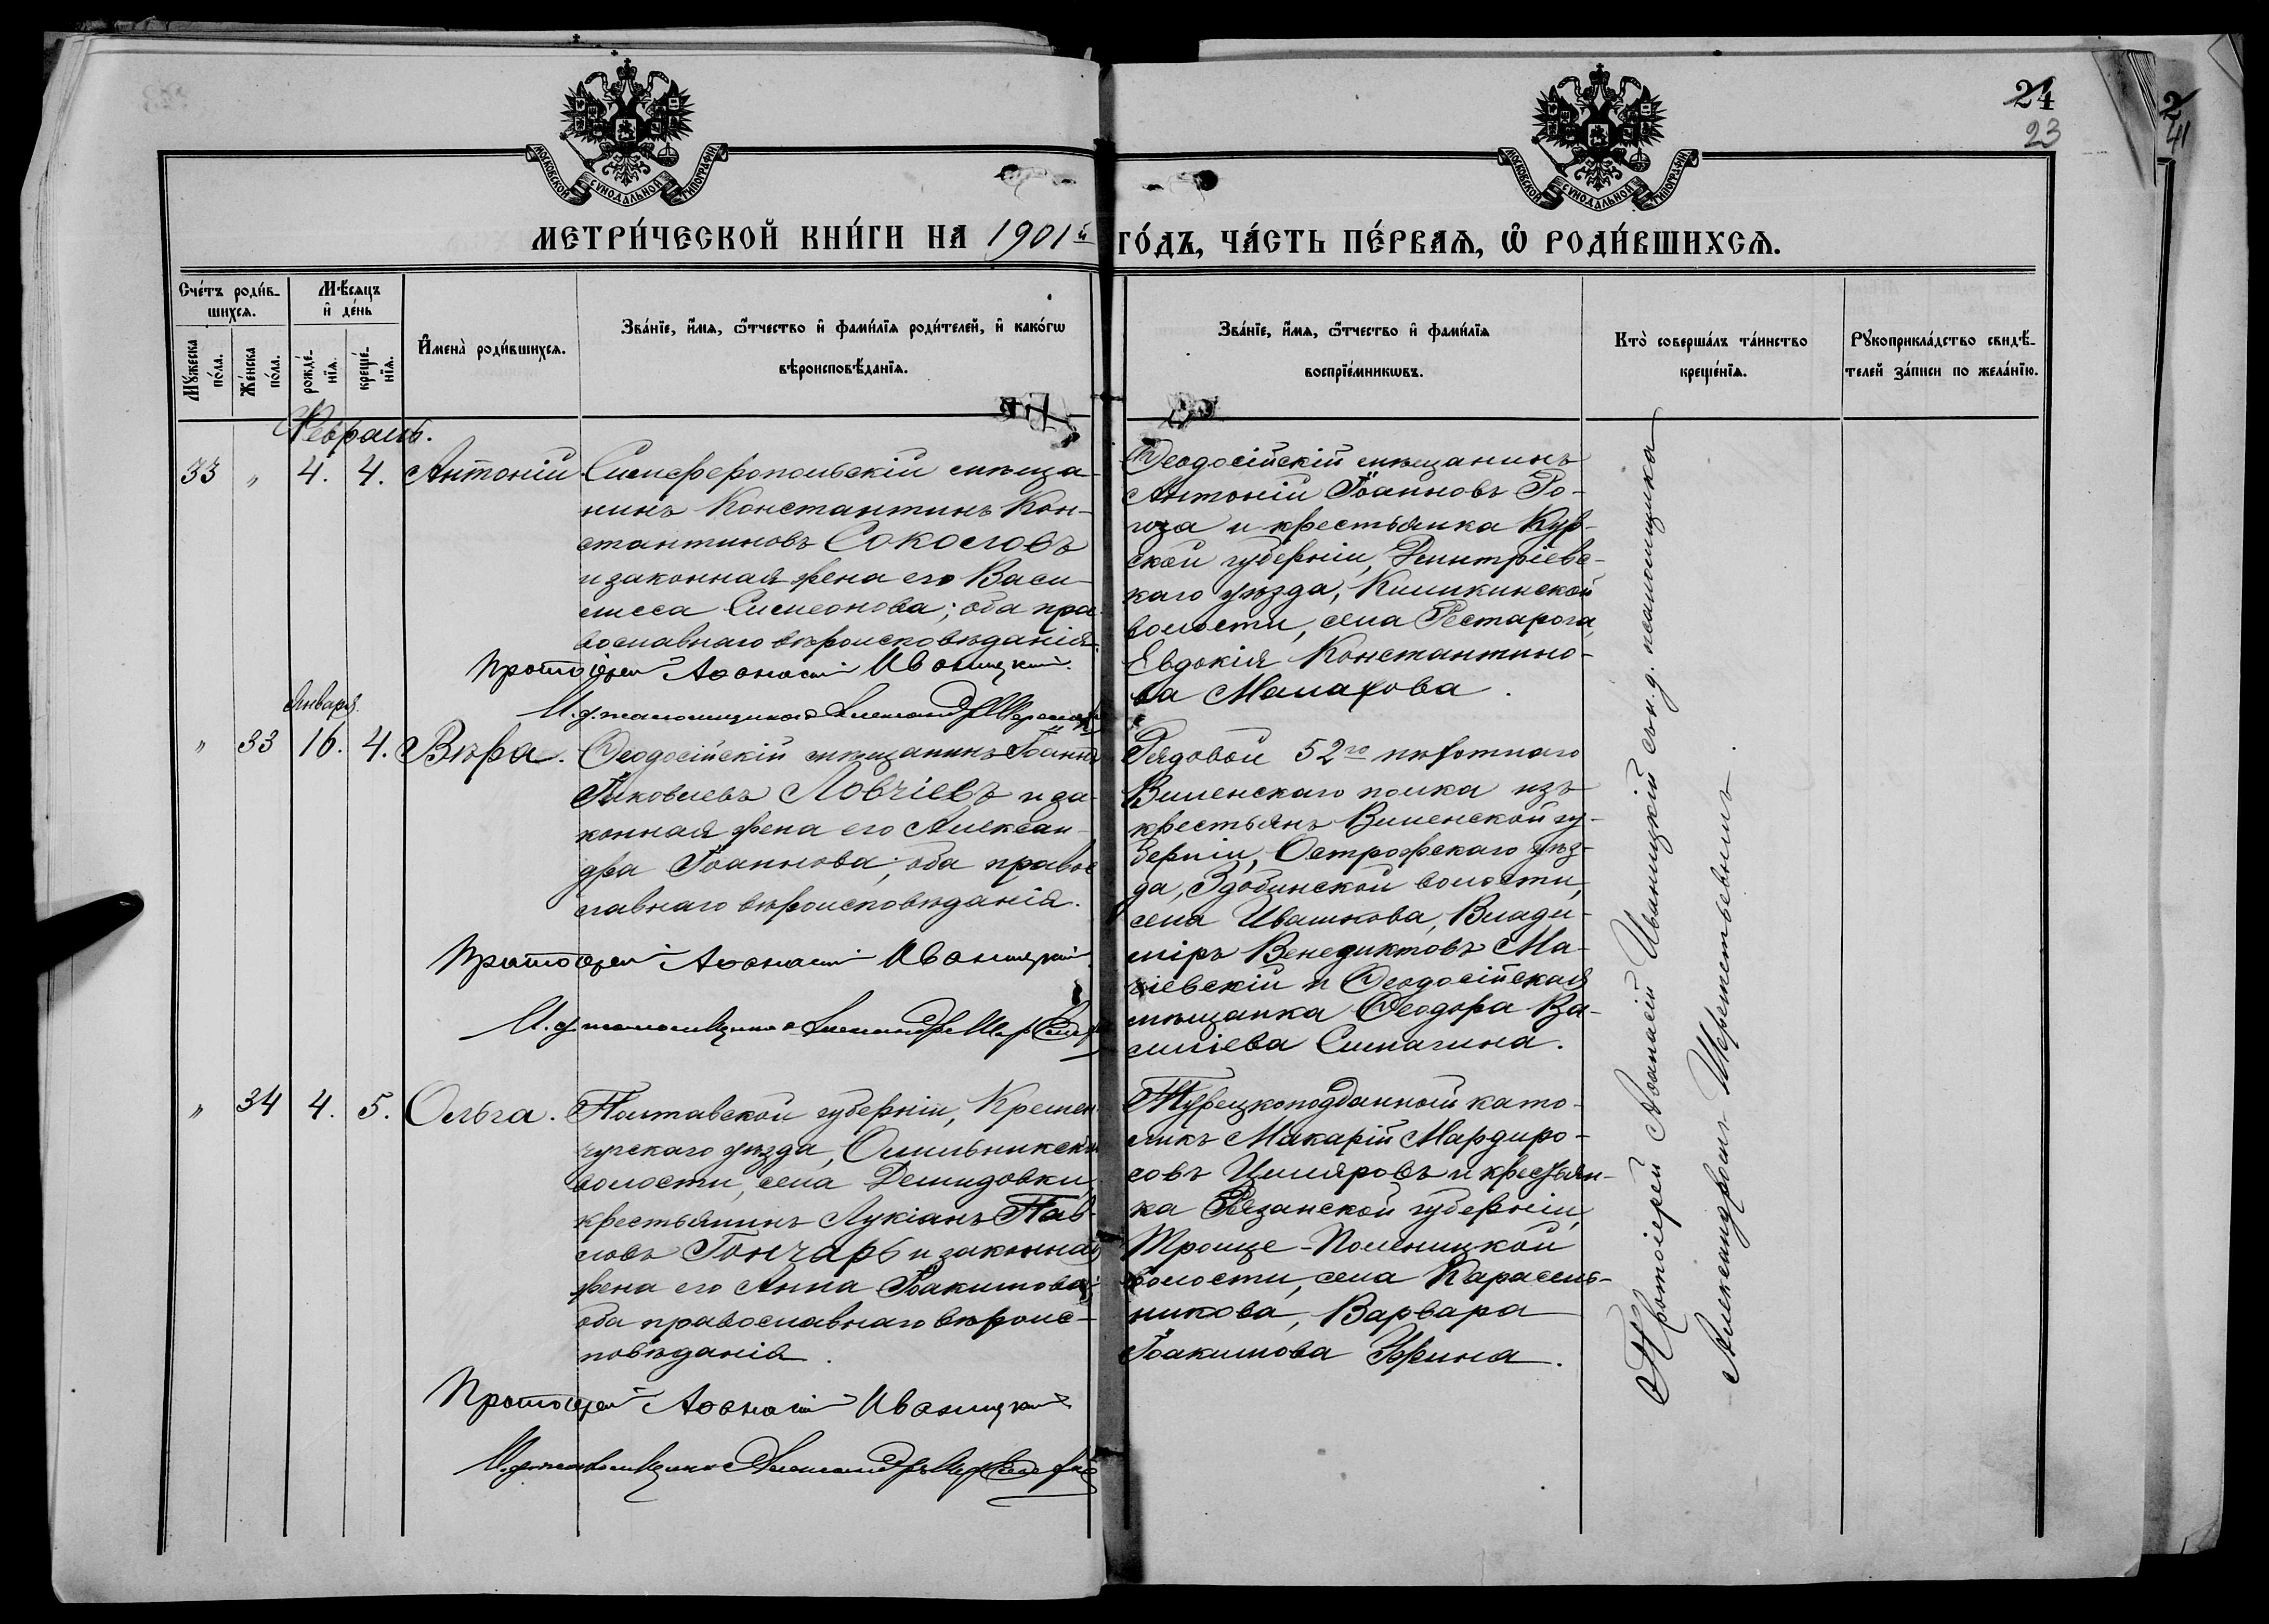 24
23
МОСКОВСКОЙ СѴНОДАЛЬНОЙ ТИПОГРАФІИ
МОСКОВСКОЙ СѴНОДАЛЬНОЙ ТИПОГРАФІИ
МЕТРИ́ЧЕСКОЙ КНИ́ГИ НА 1901й ГО́ДЪ, ЧА́СТЬ ПЕ́РВАѦ, Ѡ РОДИ́ВШИХСѦ.
Сче́тъ роди́вшихсѧ.
Мꙋ́жеска по́ла.
Же́нска по́ла.
Мѣ́сѧцъ и҆ де́нь
рожде́нїѧ.
креще́нїѧ.
И҆мена̀ роди́вшихсѧ.
Зва́нїе, и҆́мѧ, ѻ҆́тчество и҆ фами́лїѧ роди́телей, и҆ како́гѡ
вѣроисповѣ́данїѧ.
Зва́нїе, и҆́мѧ, ѻ҆́тчество и҆ фами́лїѧ
воспрїе́мникѡвъ.
Кто̀ соверша́лъ та́инство
креще́нїѧ.
Рꙋкоприкла́дство свидѣ́-
телей за́писи по жела́нїю.
Февраль.
33 " 4. 4. Антоній
Симферопольскій мѣща-
нинъ Константинъ Кон-
стантиновъ Соколовъ
и законная жена его Васи-
лисса Симеонова; оба пра-
вославнаго вѣроисповѣданія.
Протоіерей Аѳанасій Иваницкій.
И. д. псаломщика Александръ
Ѳеодосійскій мѣщанинъ
Антоній Іоанновъ Ро-
гоза и крестьянка Кур-
ской губерніи, Дмитріевс-
каго уѣзда, Кишкинской
волости, села Рестарога,
Евдокія Константино-
ва Малахова.
Января.
" 33 16. 4. Вѣра.
Ѳеодосійскій мѣщанинъ Іоаннъ
Яковлевъ Ловчіевъ и за-
конная жена его Алексан-
дра Іоаннова; оба правос-
лавнаго вѣроисповѣданія.
Протоіерей Аѳанасій Иваницкій
И. д. псаломщика Александръ
Рядовой 52го пѣхотнаго
Виленскаго полка изъ
крестьянъ Виленской гу-
берніи, Острожскаго уѣз-
да, Здобинской волости,
села Ивашкова, Влади-
міръ Венедиктовъ Ма-
ѣіевскій и Ѳеодосійская
мѣщанка Ѳеодора Ва-
силіева Симагина.
" 34 4. 5. Ольга.
Полтавской губерніи, Кремен-
чугскаго уѣзда, Омельникской
волости, села Демидовки,
крестьянинъ Лукіанъ Пав-
ловъ Гончаръ и законная
жена его Анна Іоакимова;
оба православнаго вѣроис-
повѣданія.
Протоіерей Аѳанасій Иваницкій
И. д. псаломщика Александръ
Турецкоподданный като-
ликъ Макарій Мардиро-
совъ Циляровъ и крестьян-
ка Рязанской губерніи,
Троице-Поленицкой
волости, села Карасель-
никова, Варвара
Іоакимова Юрина.
Протоіерей Аѳанасій Иваницкій съ и. д. псаломщика
Александромъ Шереметьевымъ.